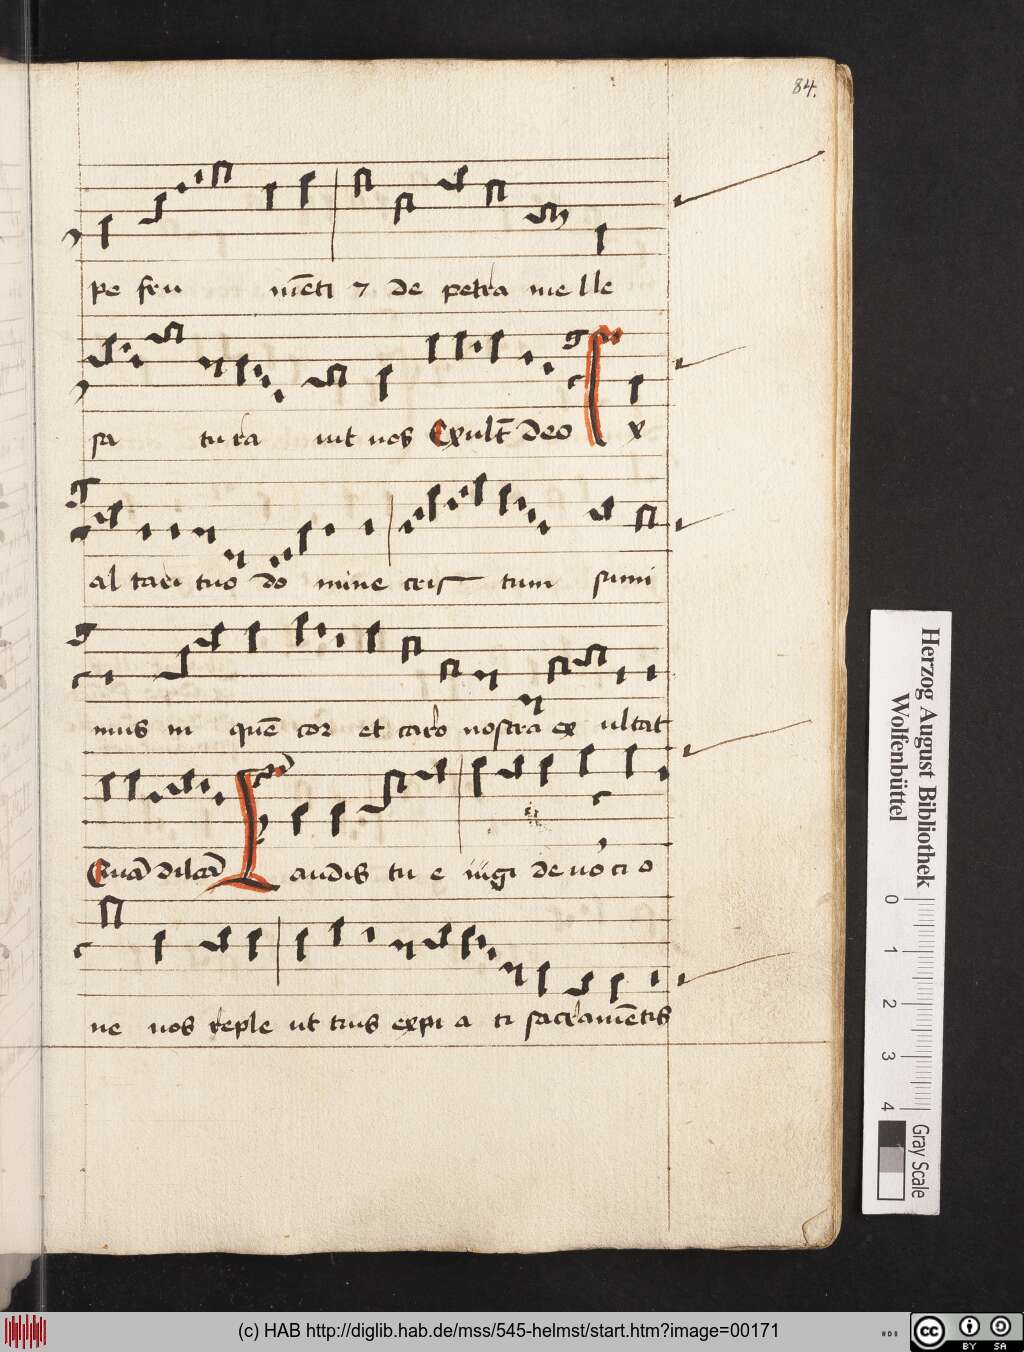 84.
pe fru mēti ⁊ de petra melle
sa tura uit nos Exult̄ deo Ex
altari tuo do mine cris tum sumi
mus in quē cor et caro nostra ex ultāt
Euā dilcā Laudis tu e iugi deuo ci o
ne nos reple ut tuis expi a ti sacramētis
Herzog August Bibliothek
Wolfenbüttel
0 1 2 3 4
Gray Scale
(c) HAB http://diglib.hab.de/mss/545-helmst/start.htm?image=00171
cc BY SA